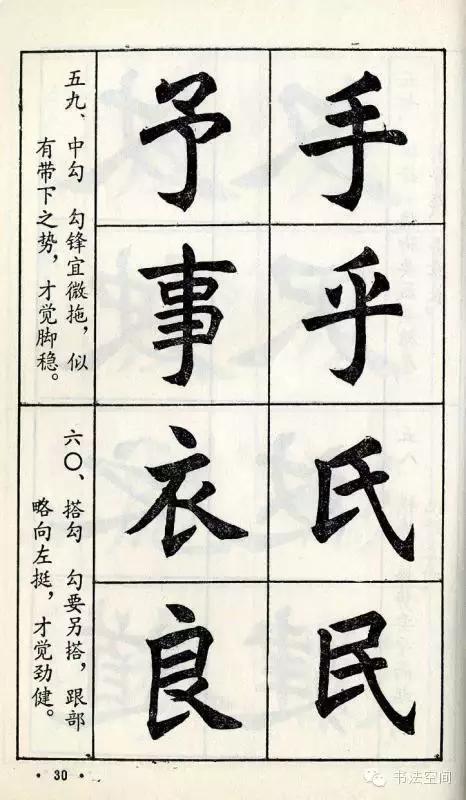 手
乎
予
事
五九、中勾　勾锋宜微拖，似
有带下之势，才觉脚稳。
氏
民
衣
良
六〇、搭勾　勾要另搭，跟部
略向左挺，才觉劲健。
·30·
书法空间